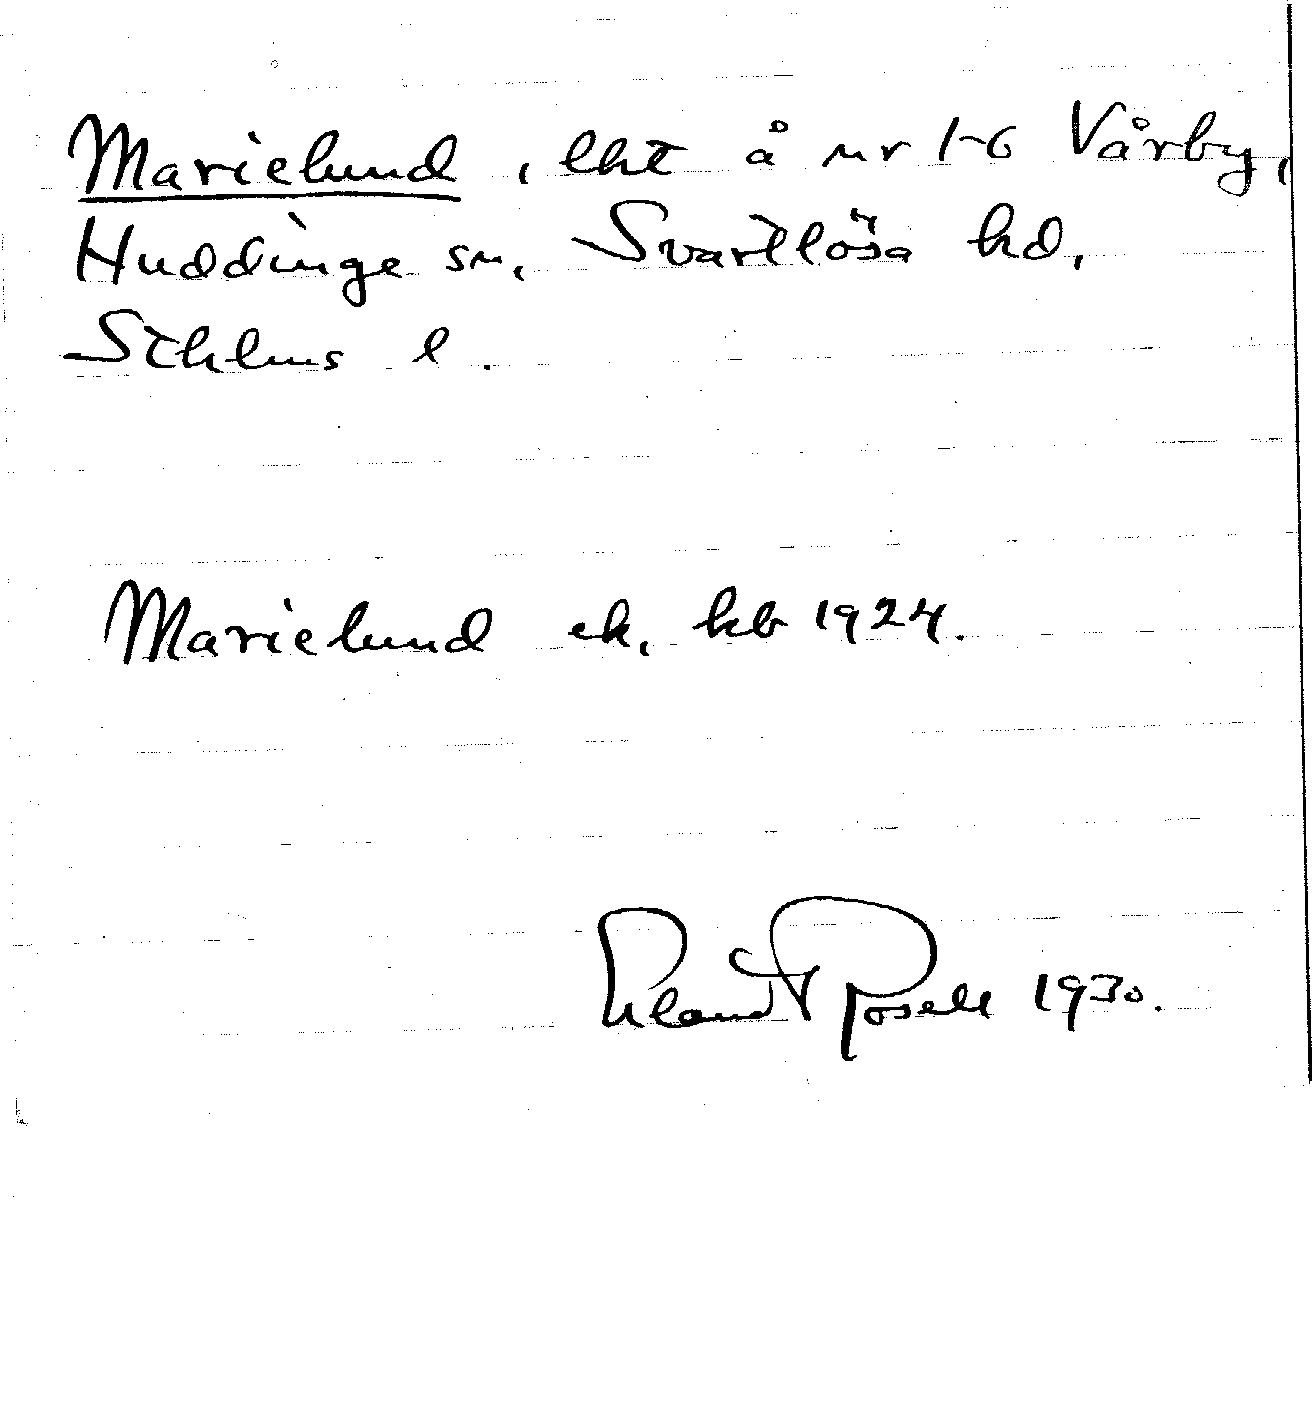 Marielund, lht å nr 1-6 Vårby,
Huddinge sn, Svartlösa hd,
Sthlms l.
Marielund ek. kb 1924.
Rosell 1930.